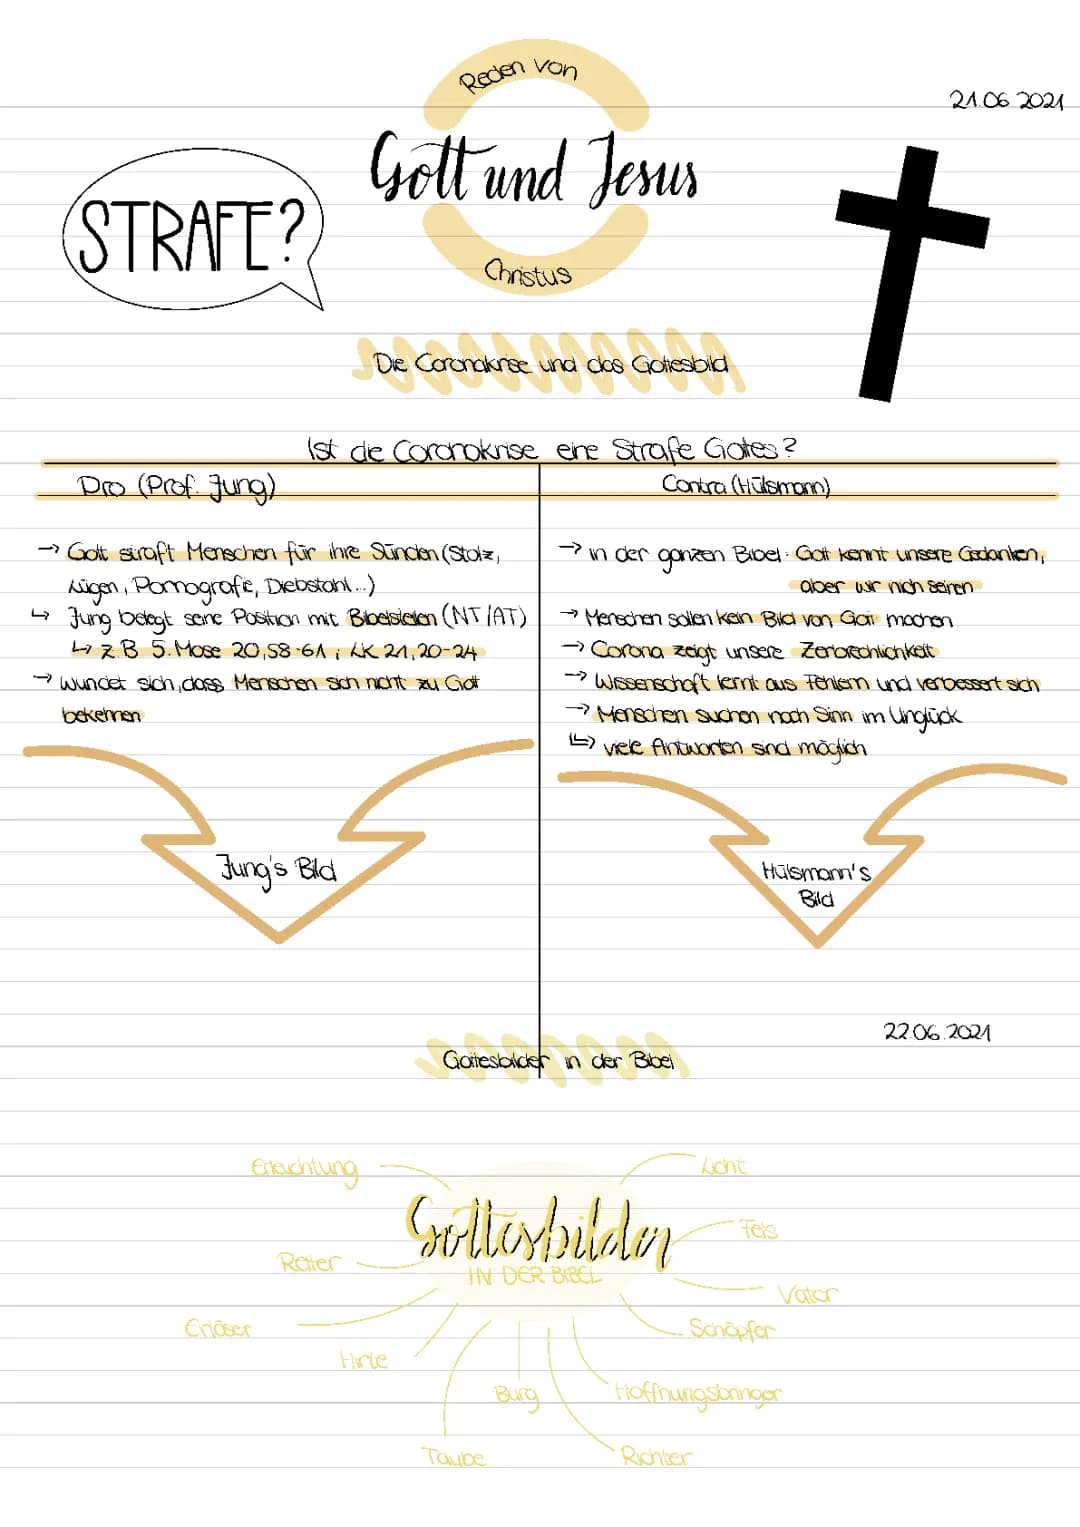 Reden von
21.06 2021
Gott und Jesus
STRAFE?
Christus
Die Coronakrise und das Gottesbild
Ist die Coronakrise eine Strafe Gottes?
Pro (Prof. Jung)
Contra (Hülsmann)
→ Gott straft Menschen für ihre Sünden (Stolz,
Lügen, Pornografie, Diebstahl...)
↳ Jung belegt seine Position mit Bibelstellen (NT/AT)
↳ z.B 5. Mose 20,58-61; LK 21,20-24
→ wundet sich, dass Menschen sich nicht zu Gott
bekehren
→ in der ganzen Bibel: Gott kennt unsere Gedanken,
aber wir nich seinen
→ Menschen sollen kein Bild von Gott machen
→ Corona zeigt unsere Zerbrechlichkeit
→ Wissenschaft lernt aus Fehlern und verbessert sich
→ Menschen suchen nach Sinn im Unglück
↳ viele Antworten sind möglich
Jung's Bild
Hülsmann's
Bild
22.06.2021
Gottesbilder in der Bibel
Erleuchtung
Licht
Gottesbilder
IN DER BIBEL
Fels
Retter
Vater
Erlöser
Schöpfer
Hirte
Burg
Hoffnungsbringer
Taube
Richter